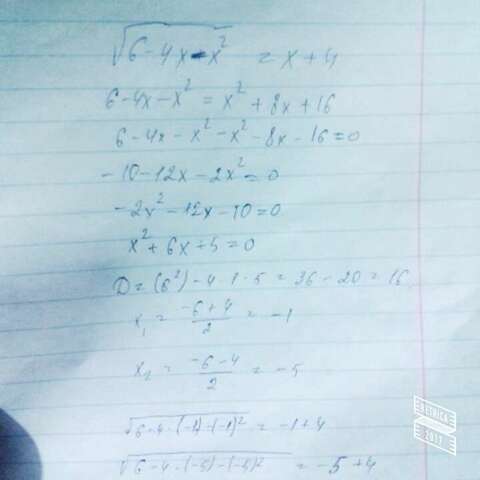 √6-4x-x² = x+4
6-4x-x² = x²+8x+16
6-4x-x²-x²-8x-16=0
-10-12x-2x²=0
-2x²-12x-10=0
x²+6x+5=0
D=(6²)-4·1·5=36-20=16
x₁ = (-6+4)/2 = -1
x₂ = (-6-4)/2 = -5
√6-4·(-1)-(-1)² = -1+4
√6-4·(-5)-(-5)² = -5+4
2017